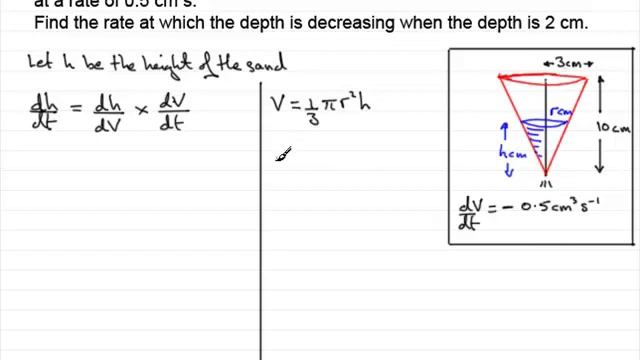 at a rate of 0.5 cm³s.
Find the rate at which the depth is decreasing when the depth is 2 cm.
Let h be the height of the sand
dh/dt = dh/dV × dV/dt
V = 1/3 π r² h
3cm
r cm
h cm
10 cm
dV/dt = - 0.5 cm³ s⁻¹